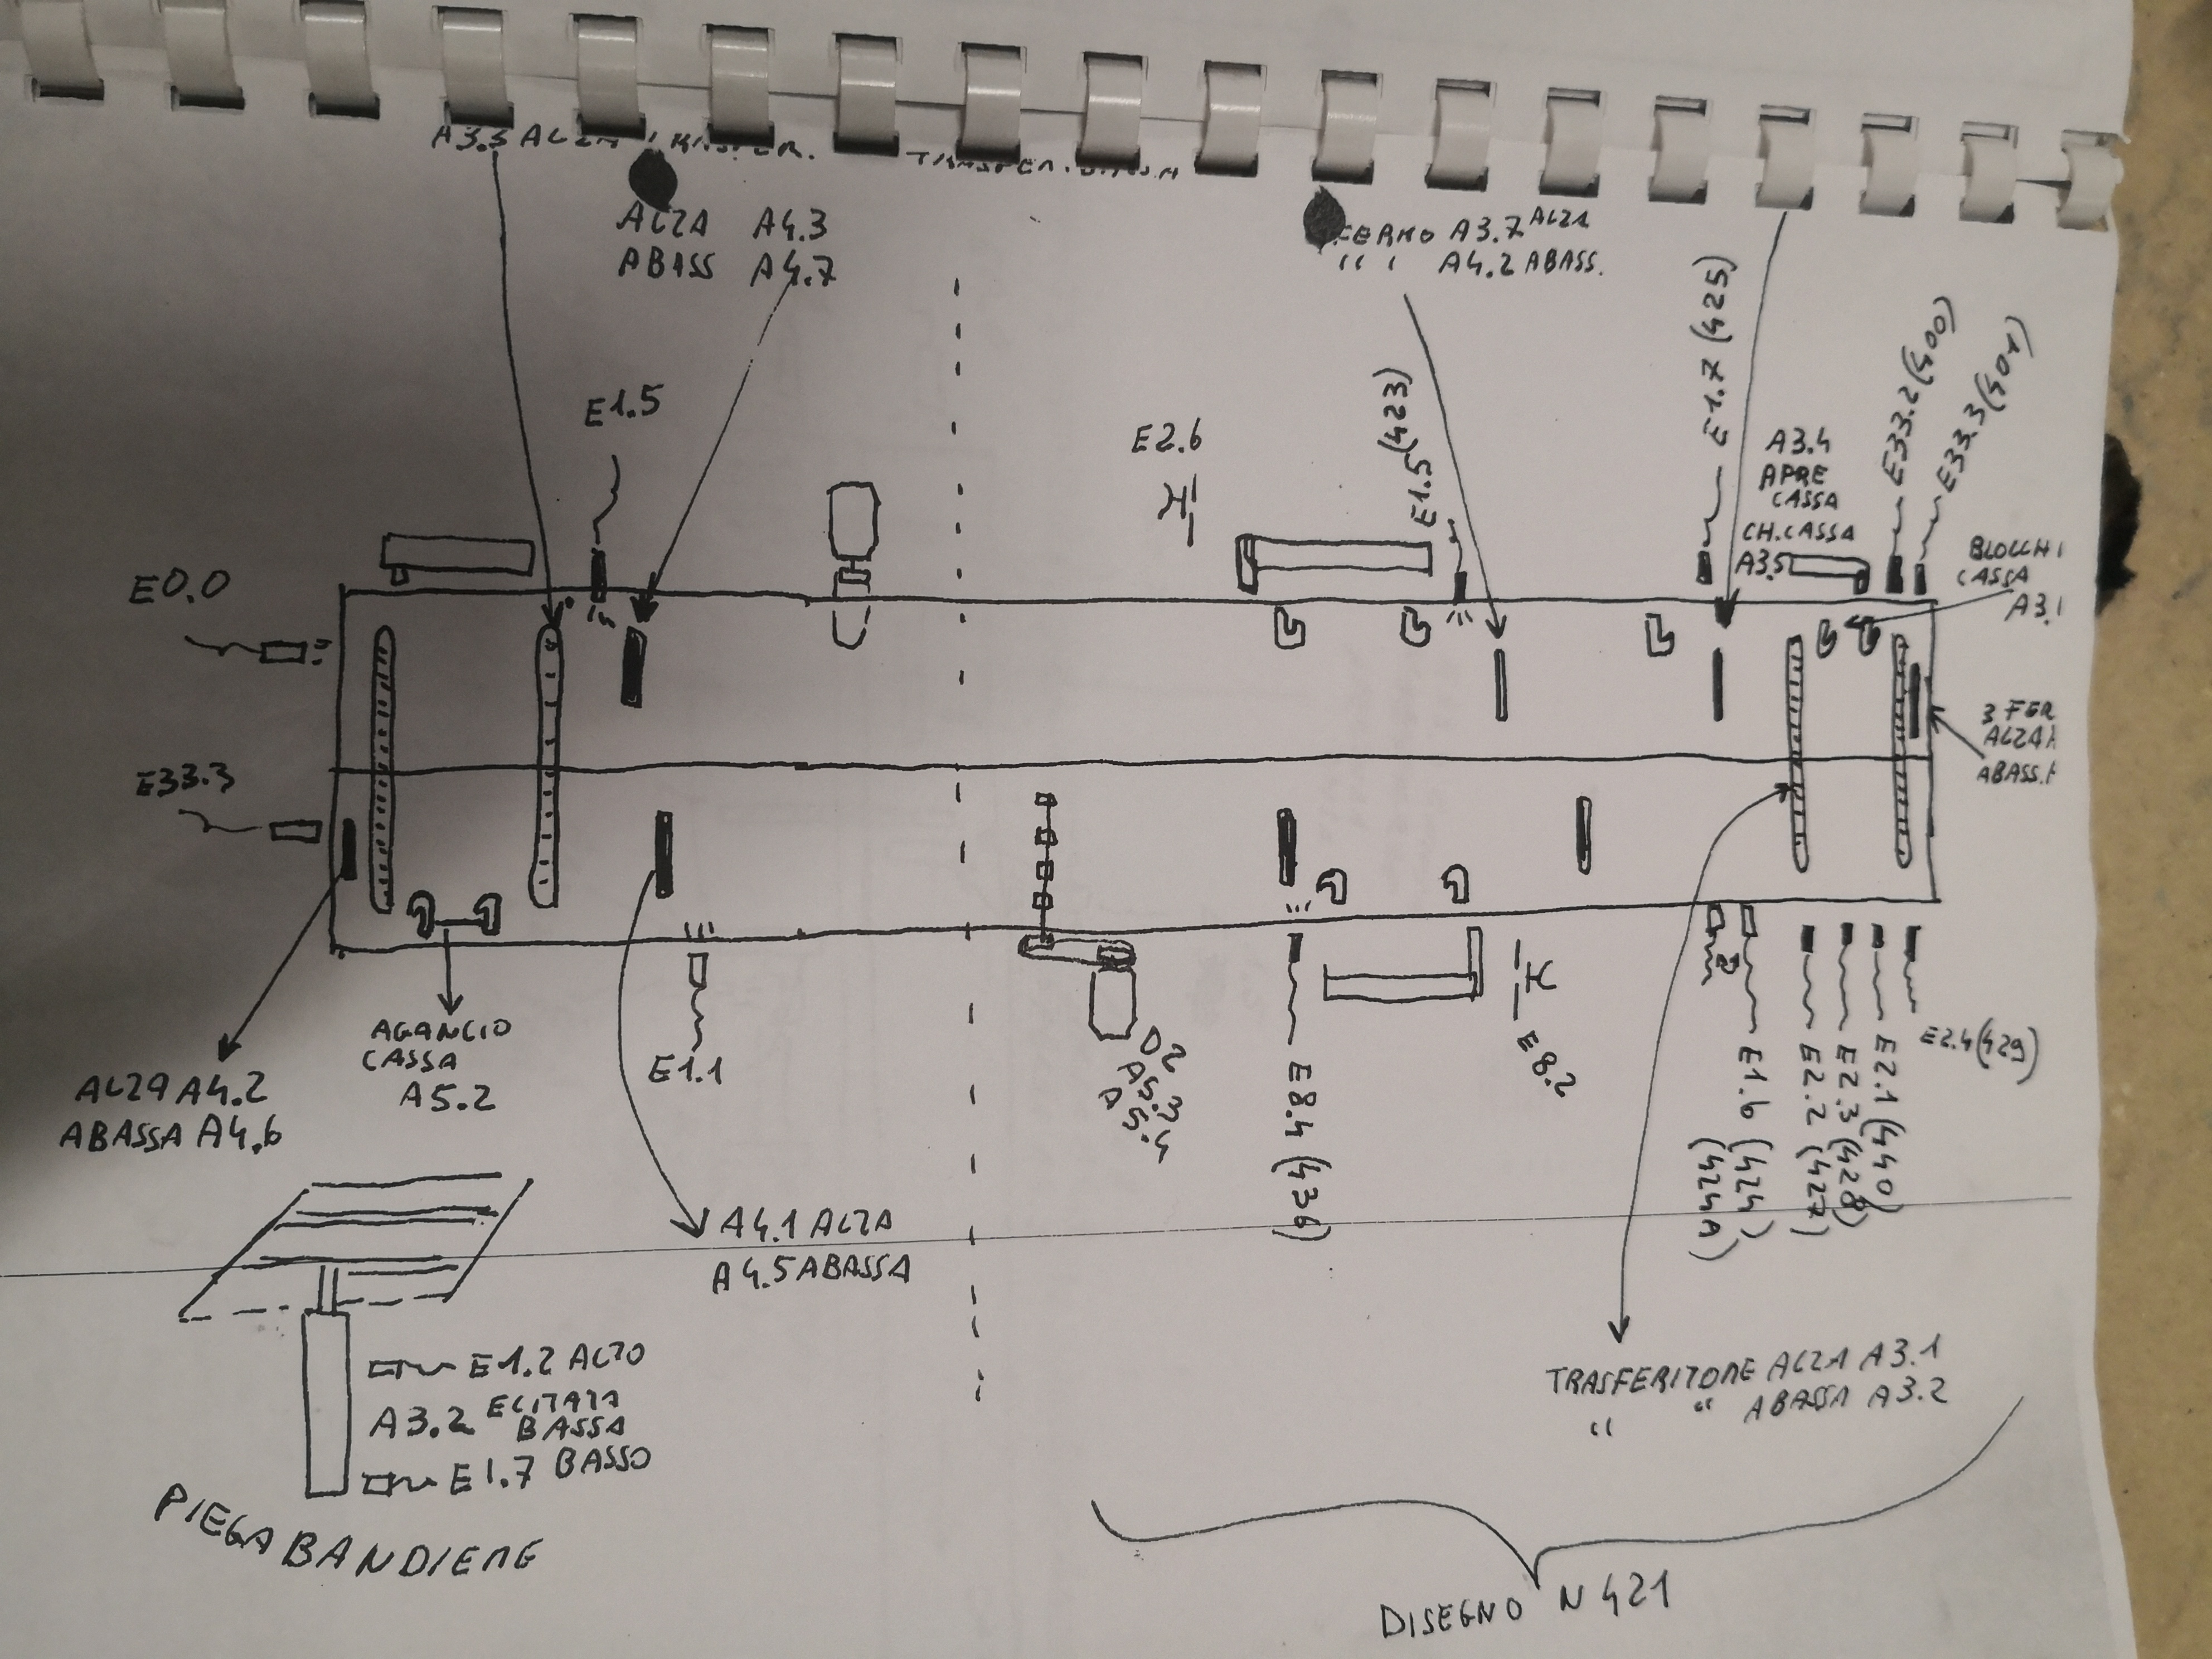 A3.3 ALZA TRASFER.
ALZA A4.3
ABASS A4.7
FERMO A3.7 ALZA
" " A4.2 ABASS.
E1.5
E2.6
E1.5 (423)
E1.7 (425)
A3.4
APRE
CASSA
CH.CASSA
A3.5
E33.2 (400)
E33.3 (401)
BLOCCHI
CASSA
A3.
E0.0
E33.3
3 FER
ALZA
ABASS.
AGANCIO
CASSA
A5.2
ALZA A4.2
ABASSA A4.6
E1.1
D2
A5.3
A5.4
E8.4 (436)
E8.2
(424A)
E1.6 (424)
E2.2 (427)
E2.3 (428)
E2.1 (440)
E2.4 (429)
A4.1 ALZA
A4.5 ABASSA
E1.2 ALTO
A3.2 ECITATA
BASSA
E1.7 BASSO
PIEGA BANDIERE
TRASFERITORE ALZA A3.1
" " ABASSA A3.2
DISEGNO N 421